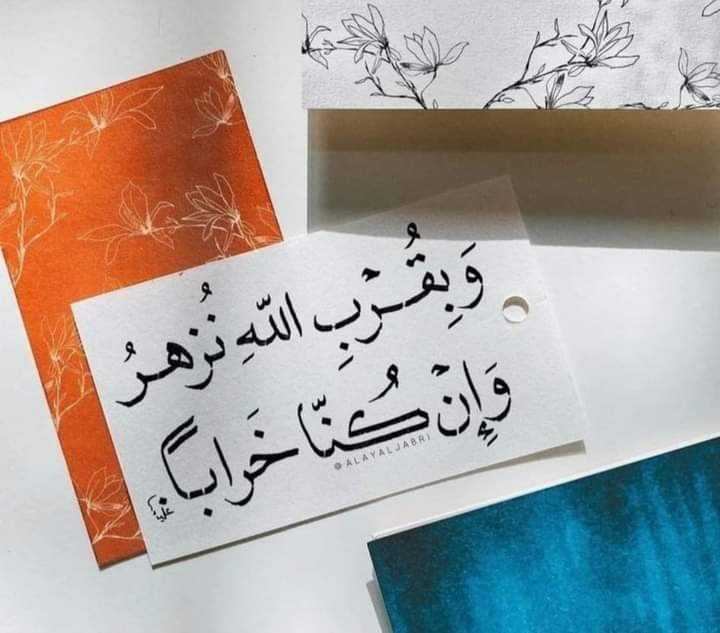 وَبِقُرْبِ اللّهِ نُزهرُ
وَإِنْ كُنّا خَراباً.
@ALAYALJABRI
علياء